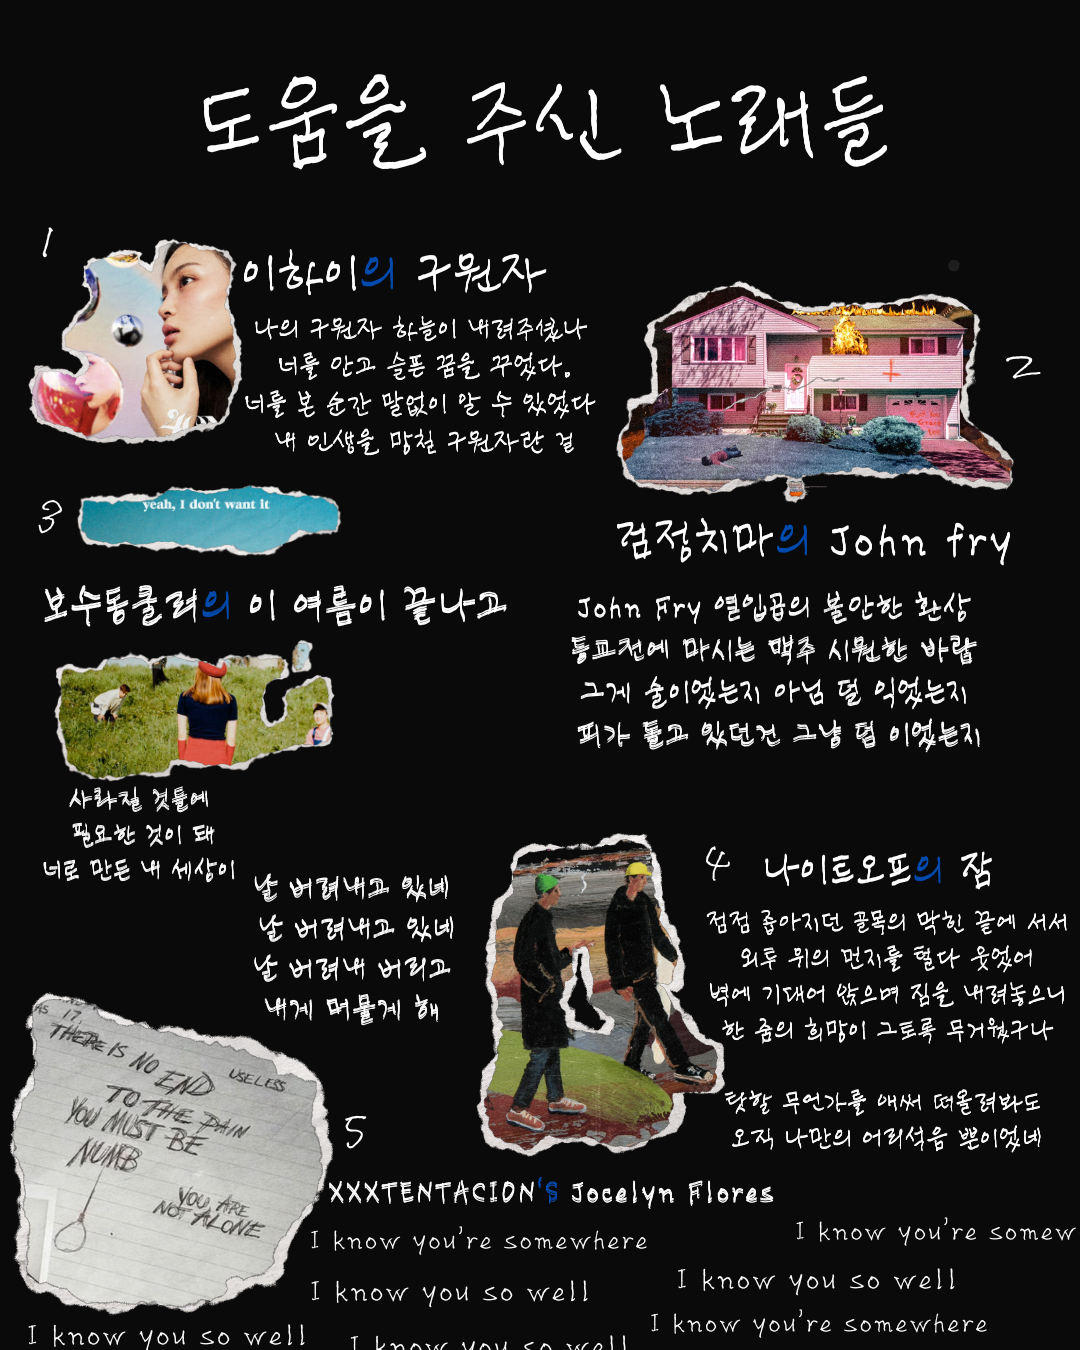 도움을 주신 노래들
1
이하이의 구원자
나의 구원자 하늘이 내려주셨나
너를 안고 슬픈 꿈을 꾸었다.
너를 본 순간 말없이 알 수 있었다
내 인생을 망친 구원자란 걸
2
검정치마의 John fry
John Fry 열입곱의 불안한 환상
통교전에 마시는 맥주 시원한 바람
그게 술이었는지 아님 덜 익었는지
피가 돌고 있던건 그냥 덤 이였는지
3
yeah, I don't want it
보수동쿨러의 이 여름이 끝나고
사라질 것들에
필요한 것이 돼
너로 만든 내 세상이
날 버려내고 있네
날 버려내고 있네
날 버려내 버리고
내게 머물게 해
4
나이트오프의 잠
점점 좁아지던 골목의 막힌 끝에 서서
외투 위의 먼지를 털다 웃었어
벽에 기대어 앉으며 짐을 내려놓으니
한 줌의 희망이 그토록 무거웠구나
탓할 무언가를 애써 떠올려봐도
오직 나만의 어리석음 뿐이었네
17,
THERE IS NO END
USELESS
TO THE PAIN
YOU MUST BE
NUMB
YOU ARE
NOT ALONE
5
XXXTENTACION'S Jocelyn Flores
I know you're somewhere
I know you're somew
I know you so well
I know you so well
I know you're somewhere
I know you so well
I know you so well